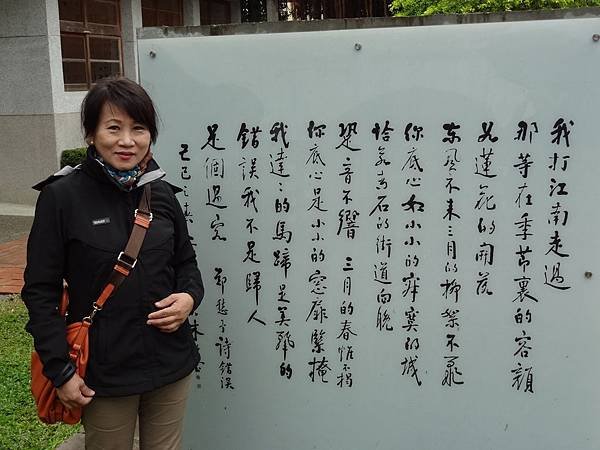 我打江南走過
那等在季節裏的容顏
如蓮花的開落
東風不來三月的柳絮不飛
你底心如小小的寂寞的城
恰氣青石的街道向晚
跫音不響 三月的春帷不揭
你底心是小小的窓扉緊掩
我達達的馬蹄是美麗的
錯誤我不是歸人
是個過客 鄭愁予詩錯誤
己巳之